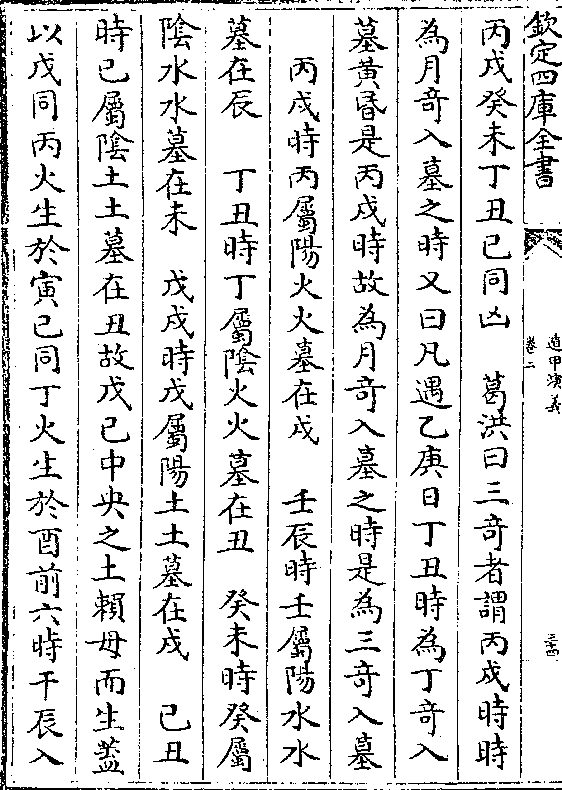 欽定四庫全書
遁甲演義
卷二
三十四
丙戌癸未丁丑已同凶 葛洪曰三奇者謂丙戌時時
為月奇入墓之時又曰凡遇乙庚日丁丑時為丁奇入
墓黃昏是丙戌時故為月奇入墓之時是為三奇入墓
丙戌時丙屬陽火火墓在戌 壬辰時壬屬陽水水
墓在辰 丁丑時丁屬陰火火墓在丑 癸未時癸屬
陰水水墓在未 戊戌時戊屬陽土土墓在戌 己丑
時己屬陰土土墓在丑故戊己中央之土賴母而生蓋
以戊同丙火生於寅己同丁火生於酉前六時干辰入